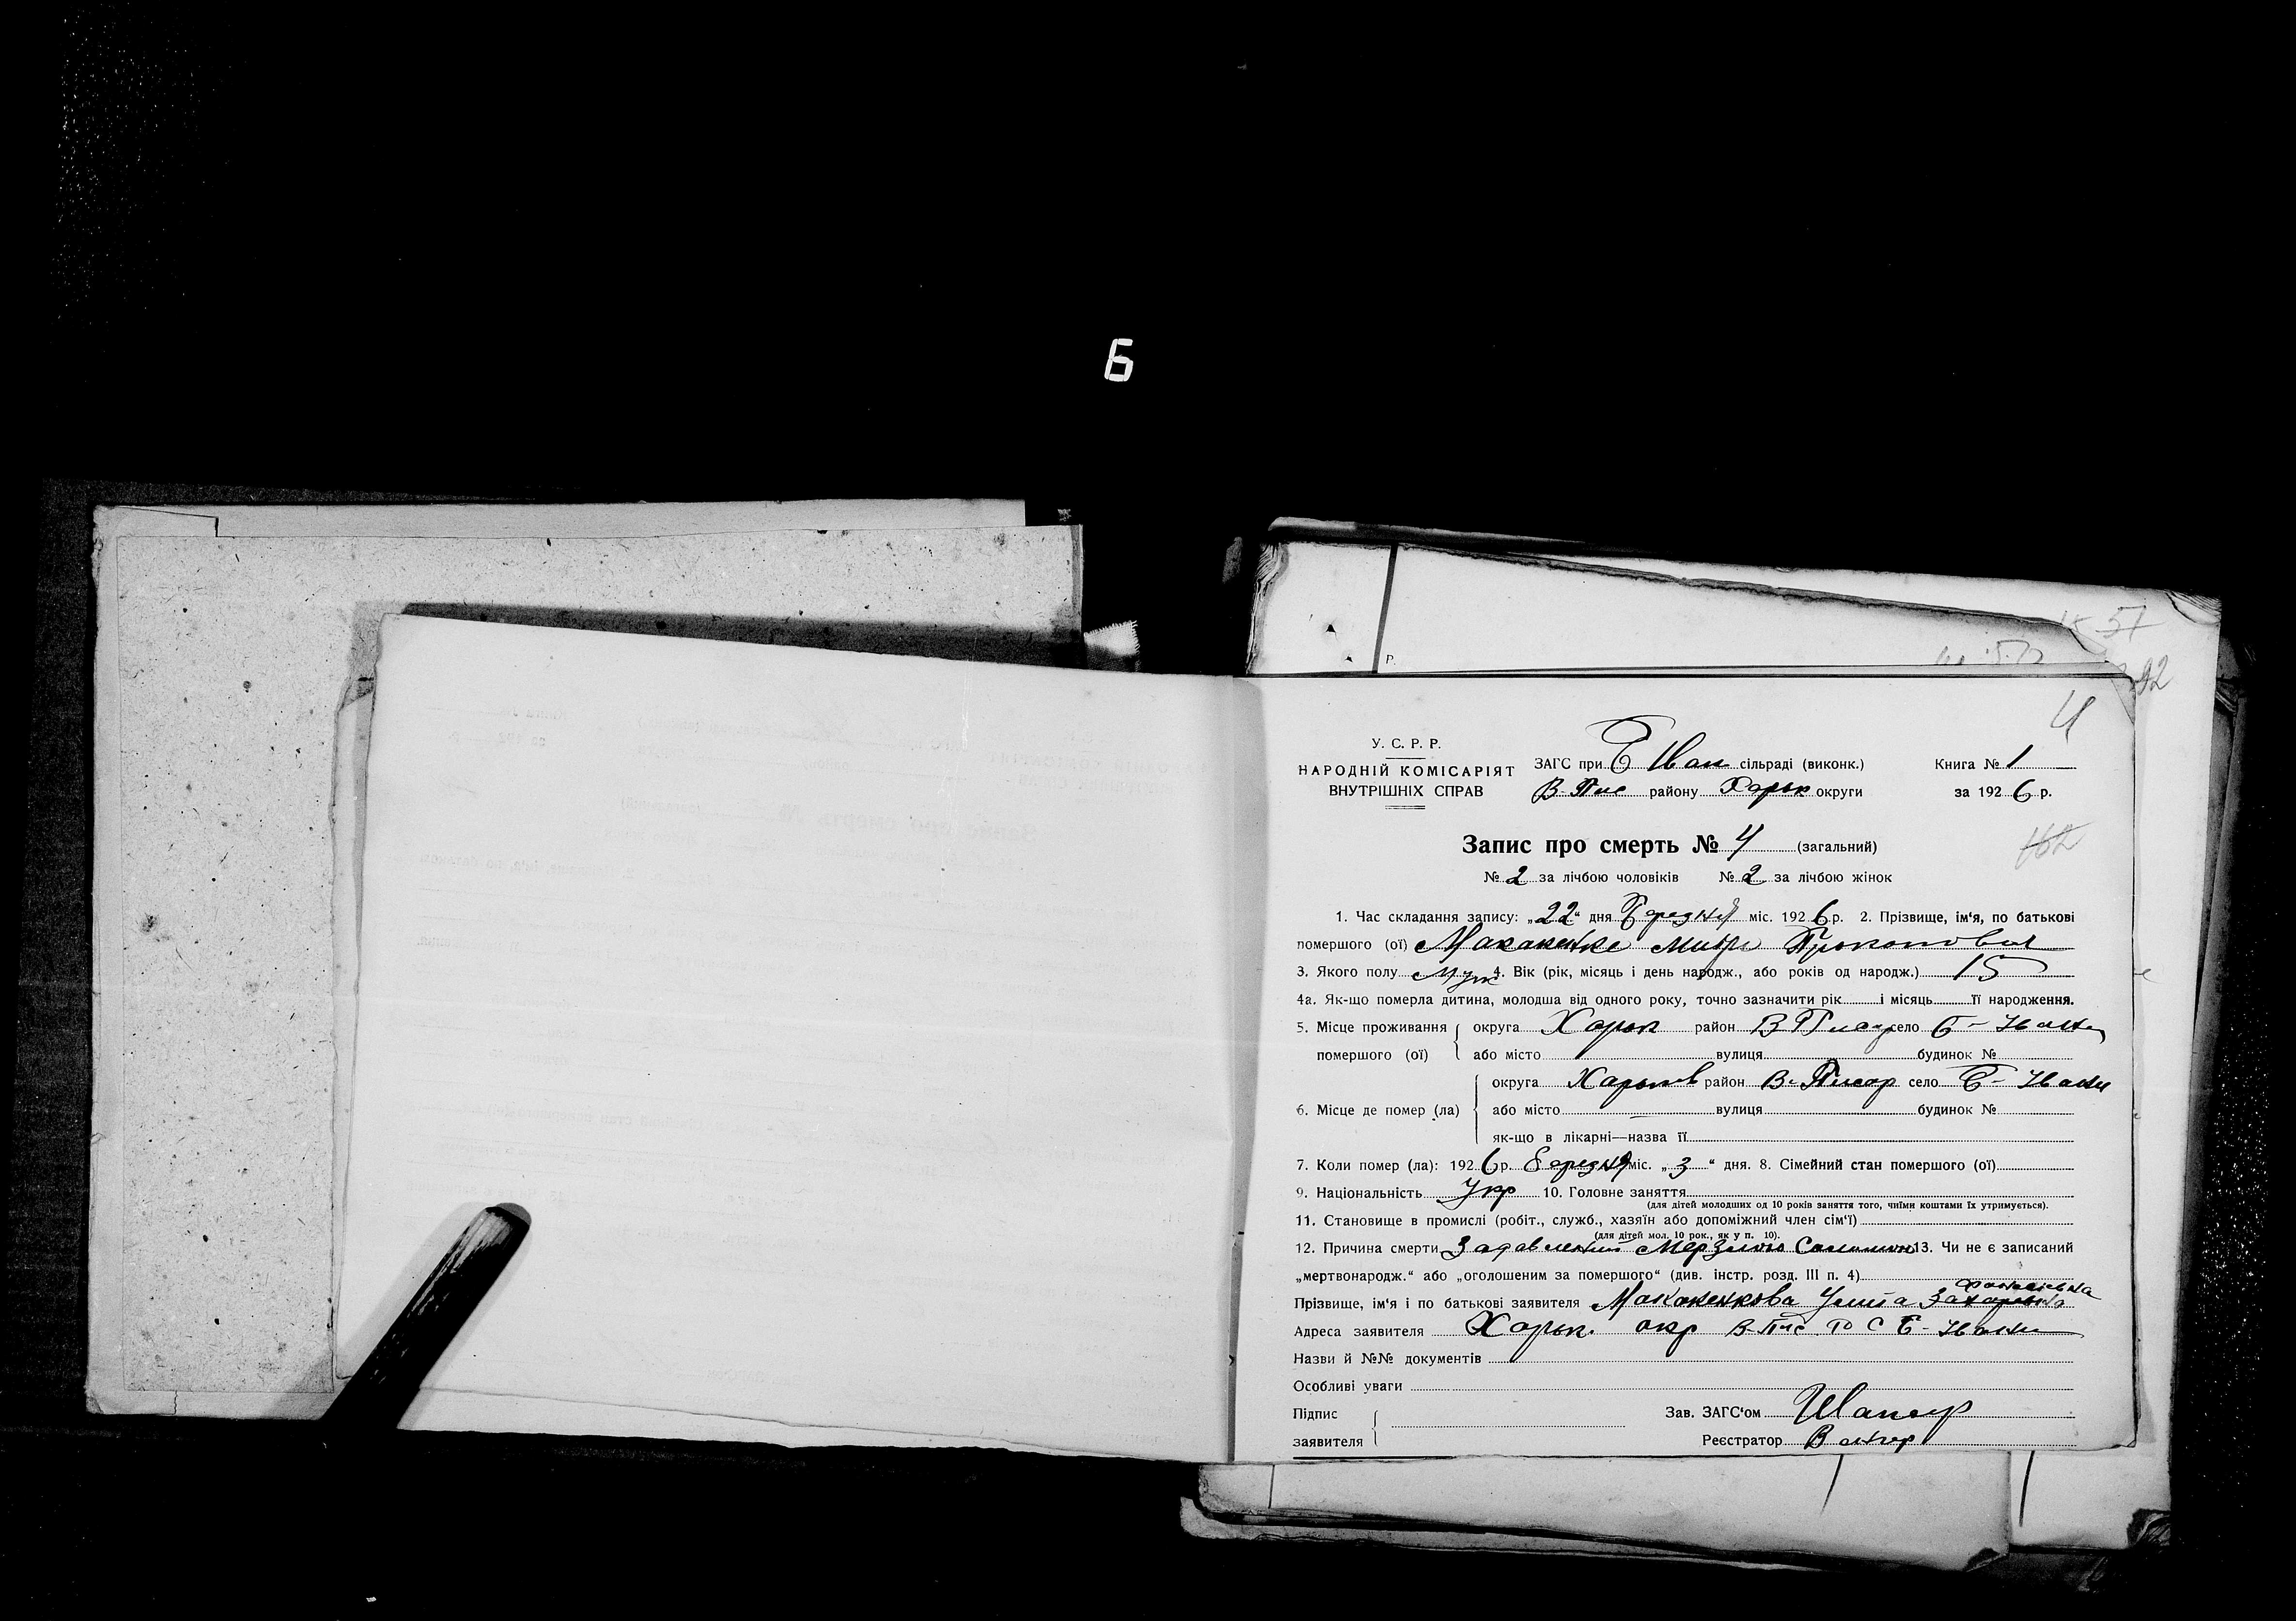 Б
57
92
4
У. С. Р. Р.
НАРОДНІЙ КОМІСАРІЯТ
ВНУТРІШНІХ СПРАВ
ЗАГС при Б Иван сільраді (виконк.)
В-Пис району Харьк округи
Книга № 1
за 1926 р.
Запис про смерть № 4 (загальний)
162
№ 2 за лічбою чоловіків № 2 за лічбою жінок
1. Час складання запису: „22“ дня Березня міс. 1926 р. 2. Прізвище, ім'я, по батькові
помершого (ої) Прокопович
3. Якого полу Муж 4. Вік (рік, місяць і день народж., або років од народж.) 15
4а. Як-що померла дитина, молодша від одного року, точно зазначити рік і місяць її народження.
5. Місце проживання помершого (ої) округа Харьк район В Писар село Б-Ивани
або місто вулиця будинок №
6. Місце де помер (ла) округа Харьков район В-Писар село Б-Ивани
або місто вулиця будинок №
як-що в лікарні—назва її
7. Коли помер (ла): 1926 р. Березня міс. „3“ дня. 8. Сімейний стан помершого (ої)
9. Національність Укр 10. Головне заняття
(для дітей молодших од 10 років заняття того, чиїми коштами їх утримується).
11. Становище в промислі (робіт., служб., хазяїн або допоміжний член сім'ї)
(для дітей мол. 10 рок., як у п. 10).
12. Причина смерти Задавлений Мерзлою 13. Чи не є записаний
„мертвонародж.“ або „оголошеним за помершого“ (див. інстр. розд. III п. 4)
Прізвище, ім'я і по батькові заявителя Захаровна
Адреса заявителя Харьк. окр В-Пис Р С Б-Ивани
Назви й №№ документів
Особливі уваги
Підпис заявителя
Зав. ЗАГС'ом
Реєстратор